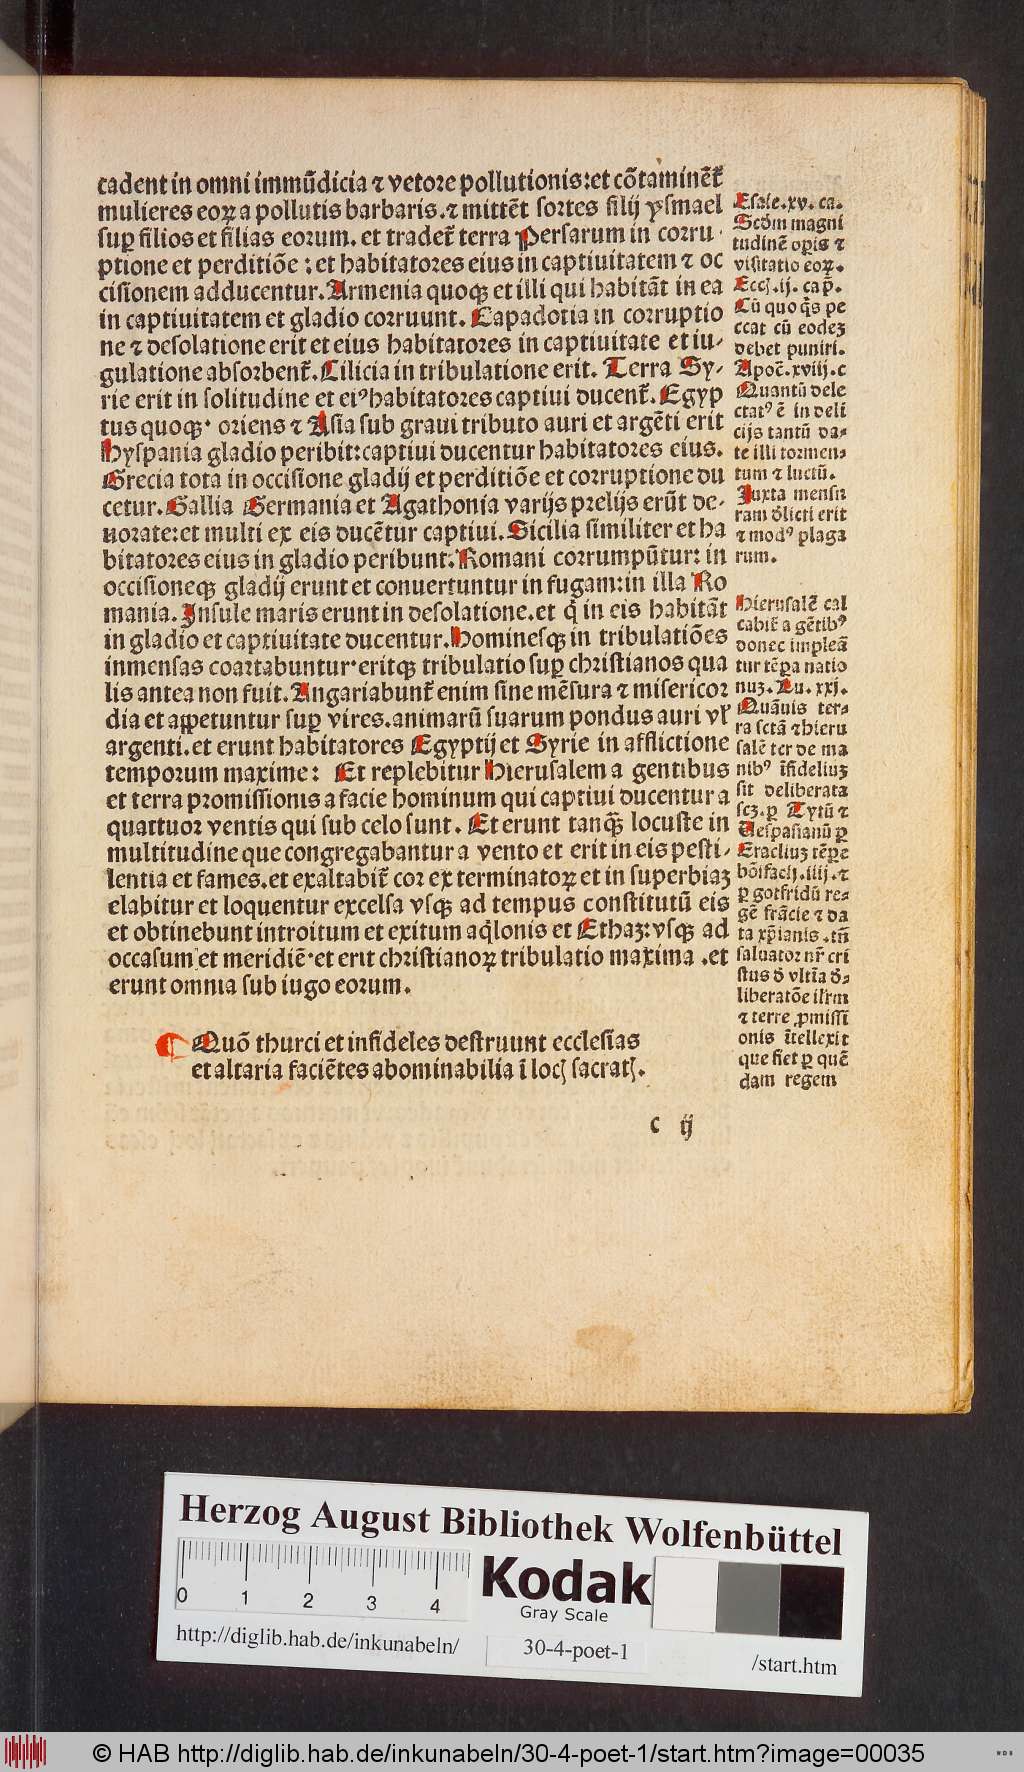 cadent in omni immūdicia ⁊ vetore pollutionis:et cōtaminēt᷑
mulieres eoꝝ a pollutis barbaris.⁊ mittēt sortes filij ysmael
suꝑ filios et filias eorum. et tradet᷑ terra Persarum in corru
ptione et perditiōe : et habitatores eius in captiuitatem ⁊ oc
cisionem adducentur. Armenia quoqꝫ et illi qui habitāt in ea
in captiuitatem et gladio corruunt. Capadotia in corruptio
ne ⁊ desolatione erit et eius habitatores in captiuitate et iu-
gulatione absorbent᷑. Cilicia in tribulatione erit. Terra Sy-
rie erit in solitudine et eiꝰ habitatores captiui ducent᷑. Egyp
tus quoqꝫ oriens ⁊ Asia sub graui tributo auri et argēti erit
Hyspania gladio peribit:captiui ducentur habitatores eius.
Grecia tota in occisione gladij et perditiōe et corruptione du
cetur. Gallia Germania et Agathonia varijs prelijs erūt de-
uorate:et multi ex eis ducētur captiui. Sicilia similiter et ha
bitatores eius in gladio peribunt. Romani corrumpūtur: in
occisioneqꝫ gladij erunt et conuertuntur in fugam:in illa Ro
mania. Insule maris erunt in desolatione.et q̇ in eis habitāt
in gladio et captiuitate ducentur. Hominesqꝫ in tribulatiōes
inmensas coartabuntur·eritqꝫ tribulatio suꝑ christianos qua
lis antea non fuit. Angariabunt᷑ enim sine mēsura ⁊ misericor
dia et appetuntur suꝑ vires.animarū suarum pondus auri vl̓
argenti.et erunt habitatores Egyptij et Syrie in afflictione
temporum maxime: Et replebitur Hierusalem a gentibus
et terra promissionis a facie hominum qui captiui ducentur a
quattuor ventis qui sub celo sunt. Et erunt tanqꝫ̄ locuste in
multitudine que congregabantur a vento et erit in eis pesti-
lentia et fames.et exaltabit᷑ cor exterminatoꝝ et in superbiaꝫ
elabitur et loquentur excelsa vsqꝫ ad tempus constitutū eis
et obtinebunt introitum et exitum aq̇lonis et Ethaꝫ:vsqꝫ ad
occasum et meridiē·et erit christianoꝝ tribulatio maxima .et
erunt omnia sub iugo eorum.
Quō thurci et infideles destruunt ecclesias
et altaria faciētes abominabilia ī locꝭ sacratꝭ.
c ij
Esaie.xv. ca.
Scd̄m magni
tudinē oꝑis ⁊
visitatio eoꝝ.
Eccꝭ.ij. cap̄.
Cū quo q̇s pe
ccat cū eodeꝫ
debet puniri.
Apoc̄.xviij.c
Quantū dele
ctatꝰ ē in deli
cijs tantū da-
te illi tormen-
tum ⁊ luctū.
Juxta mensu
ram d̄licti erit
⁊ modꝰ plaga
rum.
Hierusalē cal
cabit᷑ a gētibꝰ
donec impleā
tur tēꝑa natio
nuꝫ. Lu. xxj.
Quāuis ter-
ra sctā ⁊ hieru
salē ter de ma
nibꝰ īfideliuꝫ
sit deliberata
scꝫ.ꝑ Tytū ⁊
Vespasianū ꝑ
Eracliuꝫ tēꝑe
bōifacij.iiij.⁊
ꝑ gotfridū re-
gē frācie ⁊ da
ta xp̄ianis .tn̄
saluator nr̄ cri
stus d̄ vltīa d̄-
liberatōe isr̄m
⁊ terre ꝓmissi
onis ītellexit
que fiet ꝑ quē
dam regem
Herzog August Bibliothek Wolfenbüttel
0 1 2 3 4
Kodak
Gray Scale
http://diglib.hab.de/inkunabeln/
30-4-poet-1
/start.htm
© HAB http://diglib.hab.de/inkunabeln/30-4-poet-1/start.htm?image=00035